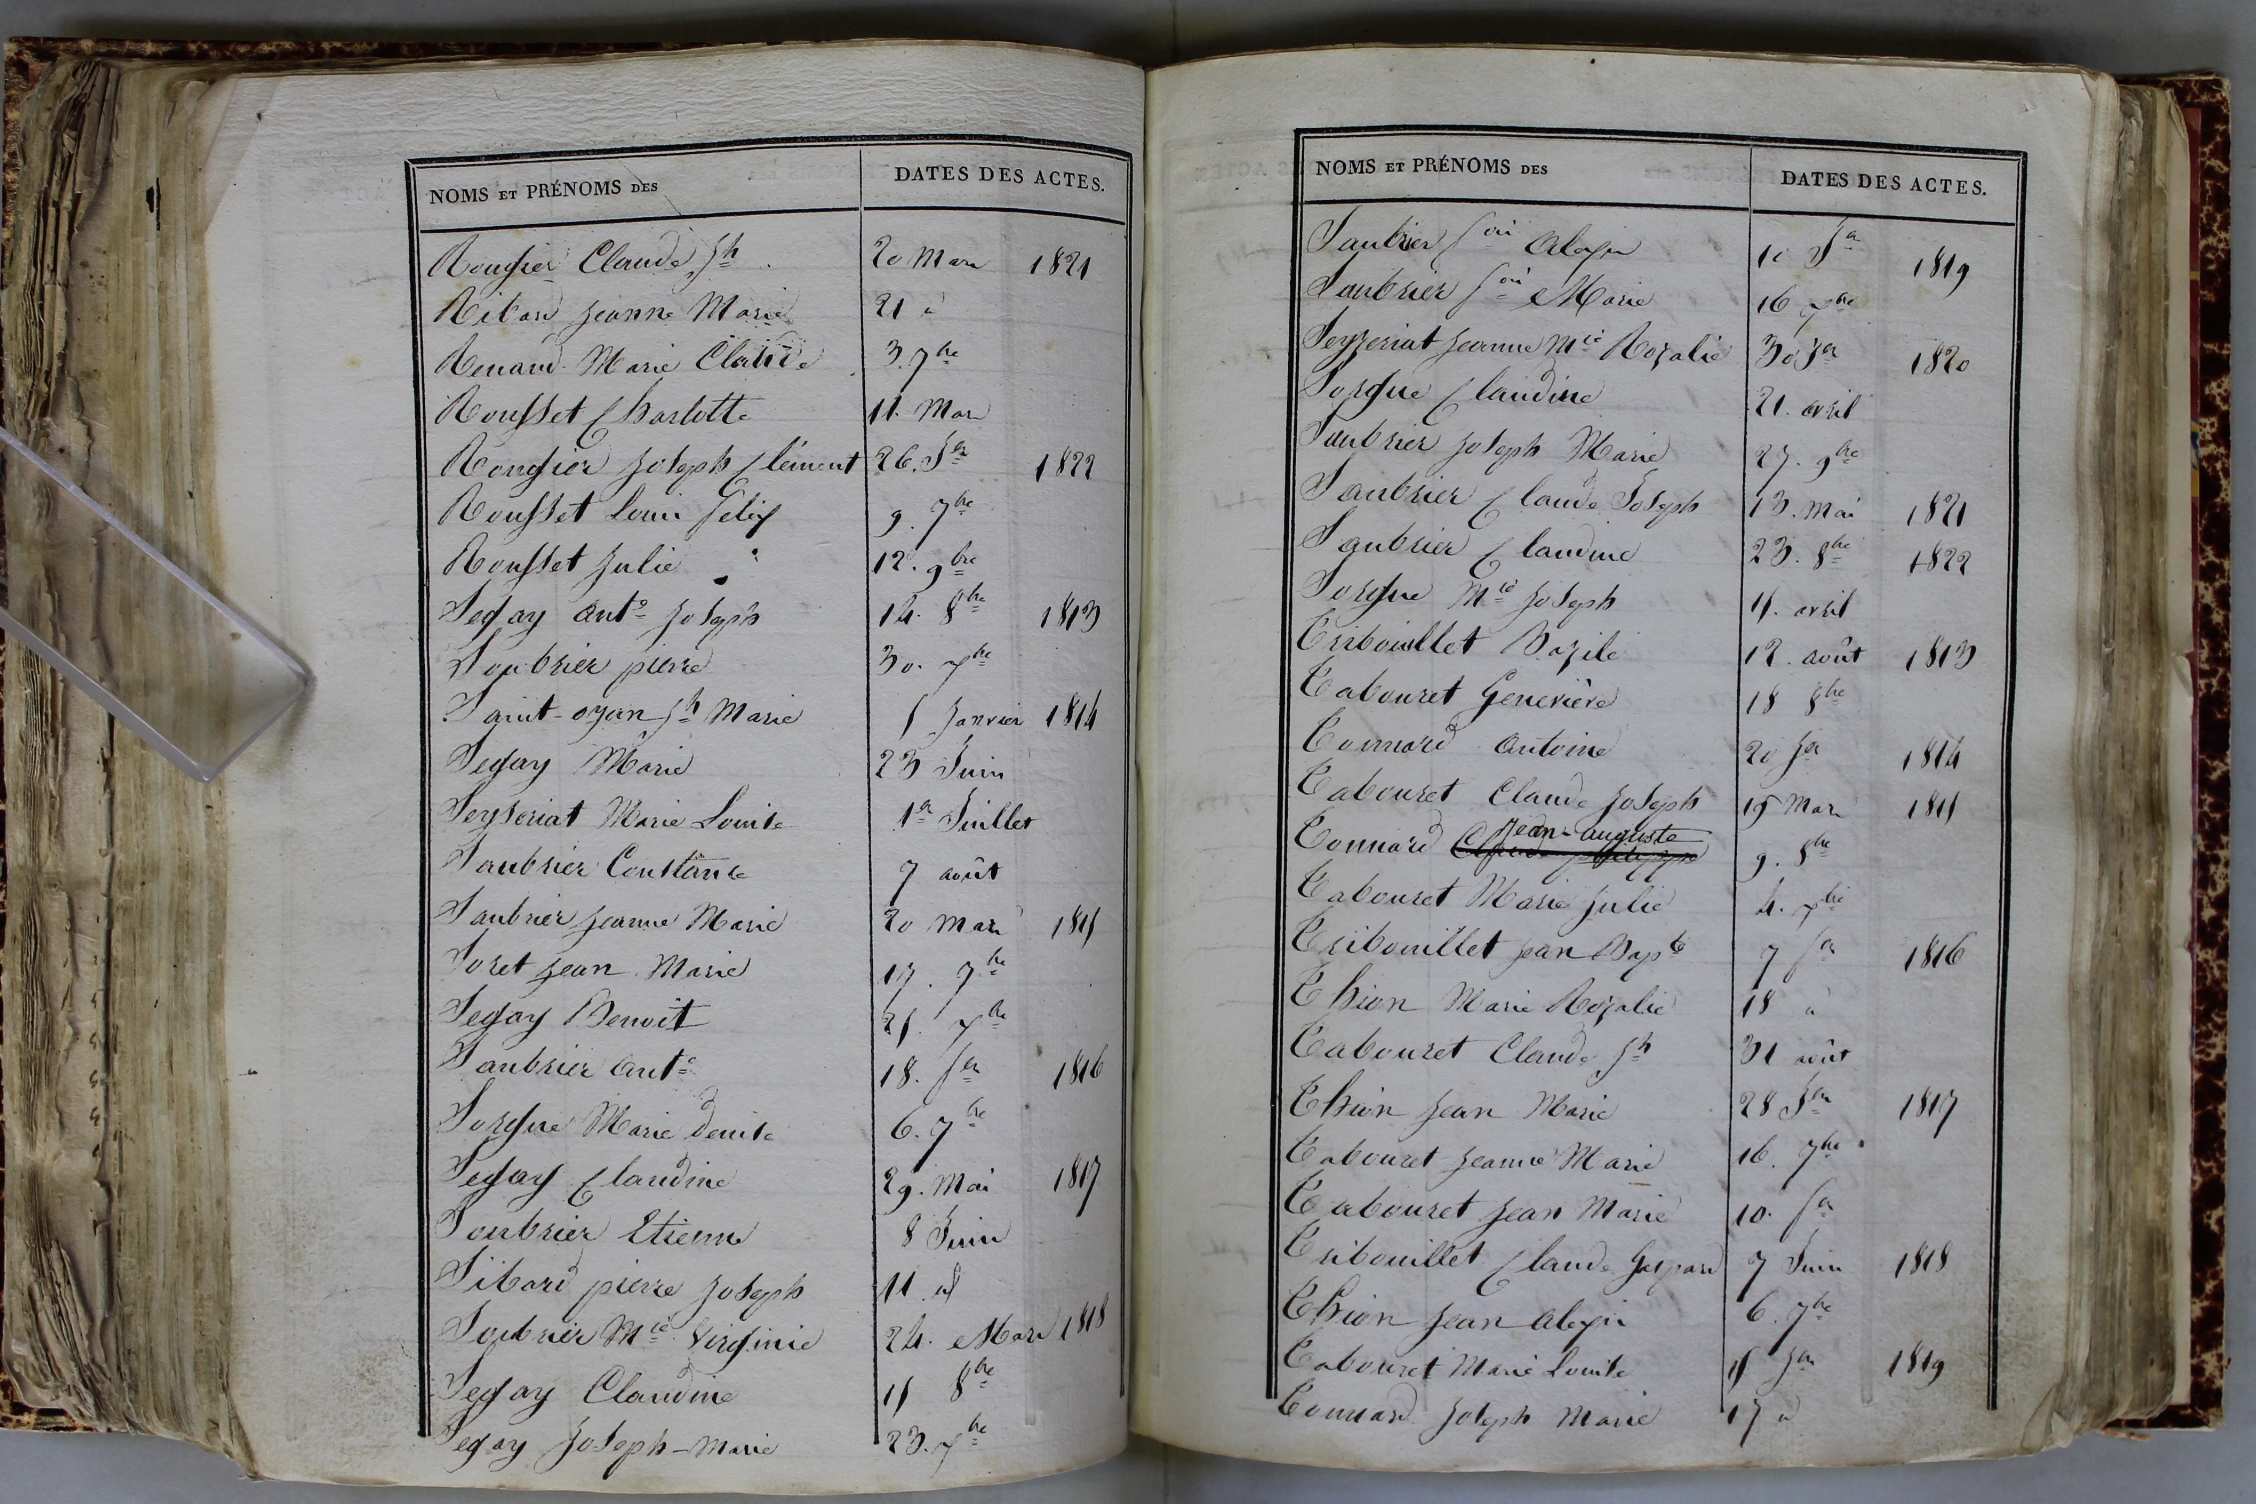 NOMS ET PRÉNOMS DES DATES DES ACTES.
Rougier Claude Jh 20 Mars 1821
Ribard Jeanne Marie 21 d
Renaud Marie Claude 3. 7bre
Rousset Charlotte 11. Mars
Rougier Joseph Clément 26. Jer 1822
Rousset Louis Félix 9. 7bre
Rousset Julie 12. 9bre
Segay Ante Joseph 14. 8bre 1813
Soubrier pierre 30. xbre
Saint-oyan Jh Marie 5 Janvier 1814
Segay Marie 23 Juin
Seyseriat Marie Louise 1er Juillet
Saubrier Constance 7 août
Saubrier Jeanne Marie 20 Mars 1815
Soret Jean Marie 17. 7bre
Segay Benoit 25. xbre
Saubrier Ante 18. fer 1816
Sorgue Marie Denise 6. 7bre
Segay Claudine 29. Mai 1817
Soubrier Etienne 8 Juin
Sibard pierre Joseph 11 d
Soubrier Mie Virginie 24. Mars 1818
Segay Claudine 15 8bre
Segay Joseph-Marie 23. xbre
NOMS ET PRÉNOMS DES DATES DES ACTES.
Saubrier fois Alexis 10 Jer 1819
Saubrier foise Marie 16 xbre
Seyzeriat Jeanne Mie Rozalie 30 Jer 1820
Sorgue Claudine 21. avril
Saubrier Joseph Marie 27. 9bre
Saubrier Claude Joseph 13. Mai 1821
Saubrier Claudine 23. 8bre 1822
Sorgue Mie Joseph 15. avril
Tribouillet Bazile 12. août 1813
Tabouret Geneviève 18 8bre
Tonnard Antoine 20 fer 1814
Tabouret Claude Joseph 15 Mars 1815
Tonnard Jean-auguste 9. 8bre
Tabouret Marie Julie 4. xbre
Tribouillet Jean Bapte 7 fer 1816
Thion Marie Rozalie 18 d
Tabouret Claude Jh 31 août
Thion Jean Marie 28 Jer 1817
Tabouret Jeanne Marie 16. 7bre
Tabouret Jean Marie 10. fer
Tribouillet Claude Gaspard 7 Juin 1818
Thion Jean Alexis 6. 7bre
Tabouret Marie Louise 15 Jer 1819
Tonnard Joseph Marie 17 d